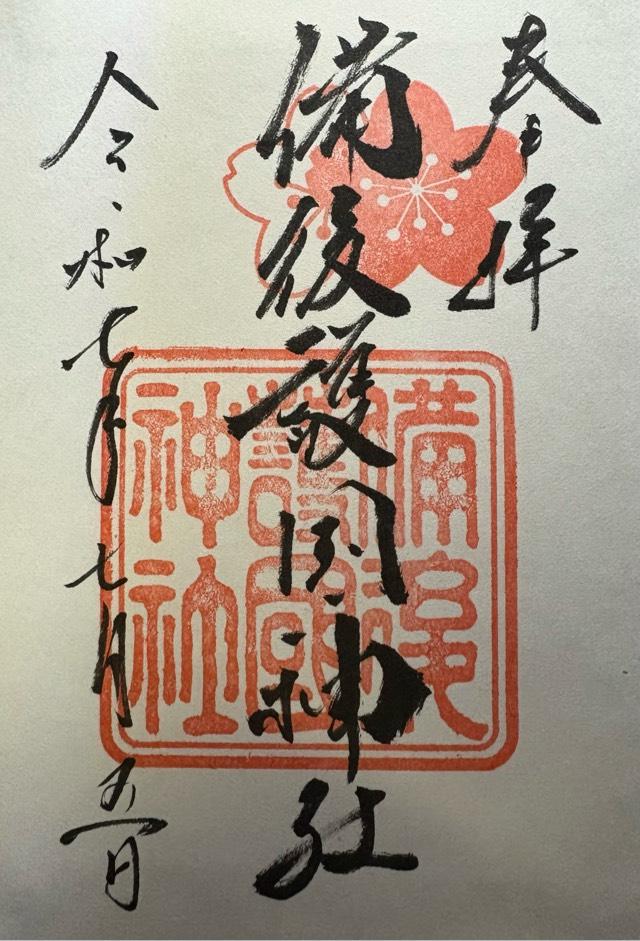 奉拝
備後護国神社
令和七年七月五日
備後
護國
神社